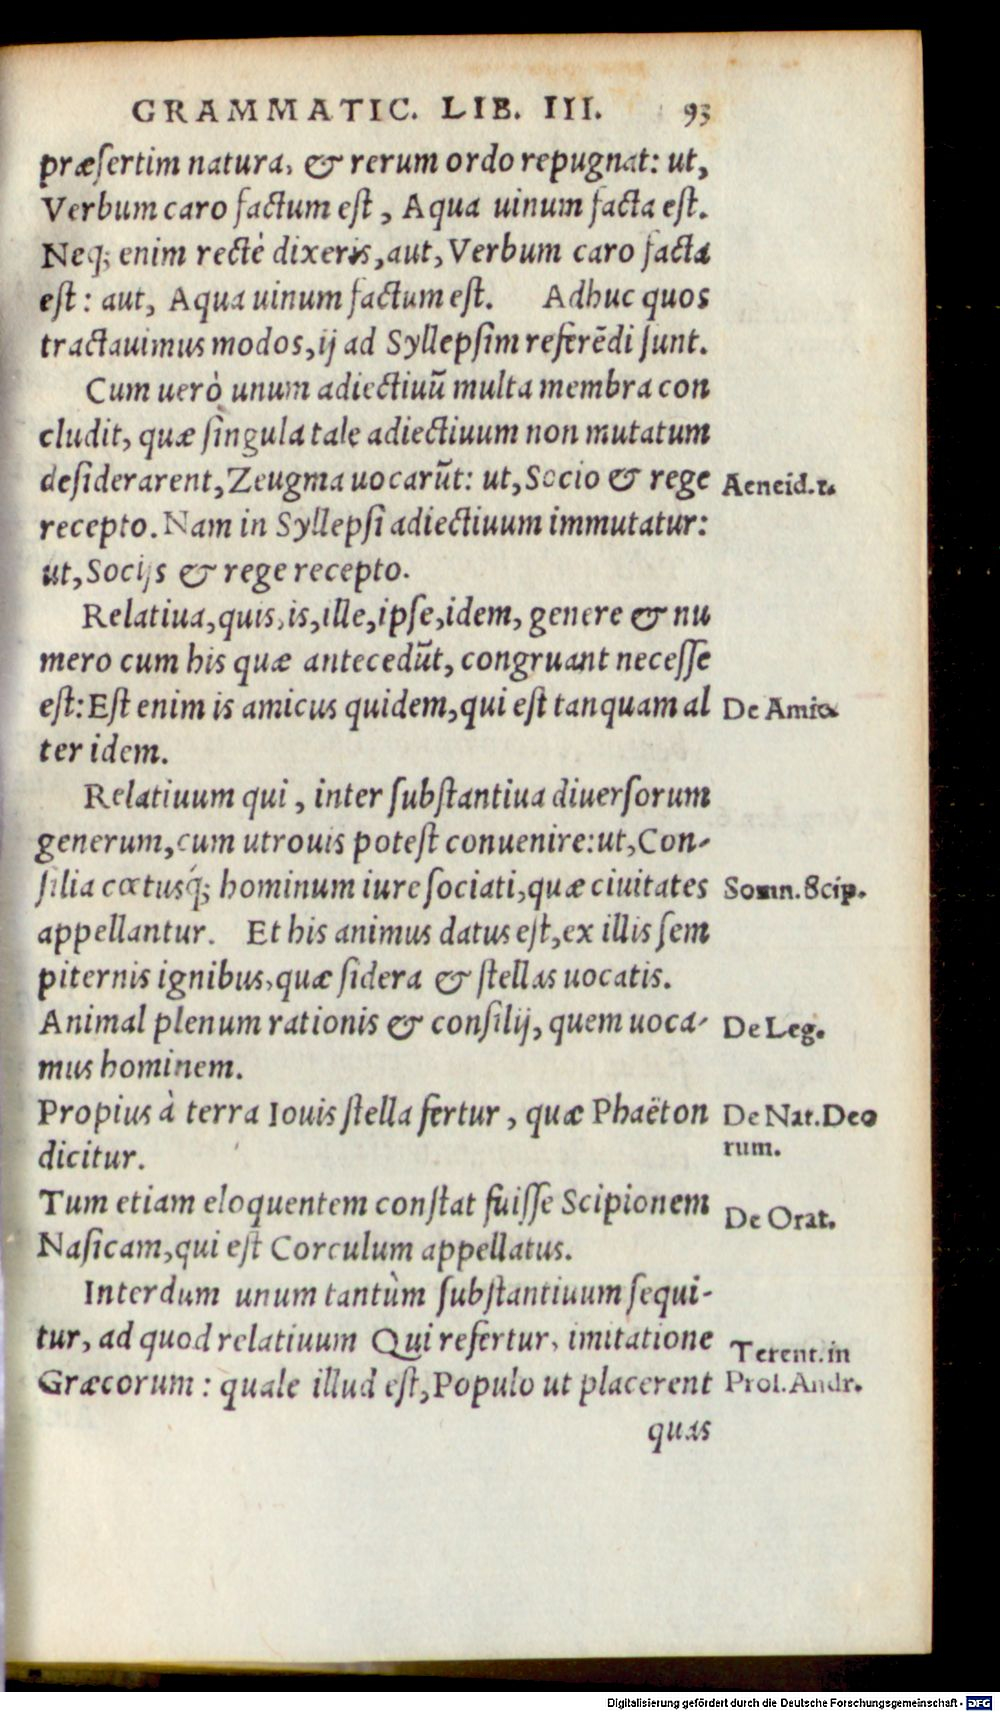 GRAMMATIC. LIB. III. 93
præſertim natura, & rerum ordo repugnat: ut,
Verbum caro factum eſt, Aqua uinum facta eſt.
Neq; enim rectè dixeris, aut, Verbum caro facta
eſt: aut, Aqua uinum factum eſt. Adhuc quos
tractauimus modos, ij ad Syllepſim referēdi ſunt.
Cum uerò unum adiectiuū multa membra con
cludit, quæ ſingula tale adiectiuum non mutatum
deſiderarent, Zeugma uocarūt: ut, Socio & rege
Aeneid.1.
recepto. Nam in Syllepſi adiectiuum immutatur:
ut, Socijs & rege recepto.
Relatiua, quis, is, ille, ipſe, idem, genere & nu
mero cum his quæ antecedūt, congruant neceſſe
eſt: Eſt enim is amicus quidem, qui eſt tanquam al
De Amic.
ter idem.
Relatiuum qui, inter ſubſtantiua diuerſorum
generum, cum utrouis poteſt conuenire: ut, Con-
ſilia cœtusq́; hominum iure ſociati, quæ ciuitates
Somn. Scip.
appellantur. Et his animus datus eſt, ex illis ſem
piternis ignibus, quæ ſidera & ſtellas uocatis.
Animal plenum rationis & conſilij, quem uoca-
De Leg.
mus hominem.
Propius à terra Iouis ſtella fertur, quæ Phaëton
De Nat. Deo
dicitur.
rum.
Tum etiam eloquentem conſtat fuiſſe Scipionem
De Orat.
Naſicam, qui eſt Corculum appellatus.
Interdum unum tantùm ſubſtantiuum ſequi-
tur, ad quod relatiuum Qui refertur, imitatione
Terent. in
Græcorum: quale illud eſt, Populo ut placerent
Prol. Andr.
quas
Digitalisierung gefördert durch die Deutsche Forschungsgemeinschaft - DFG